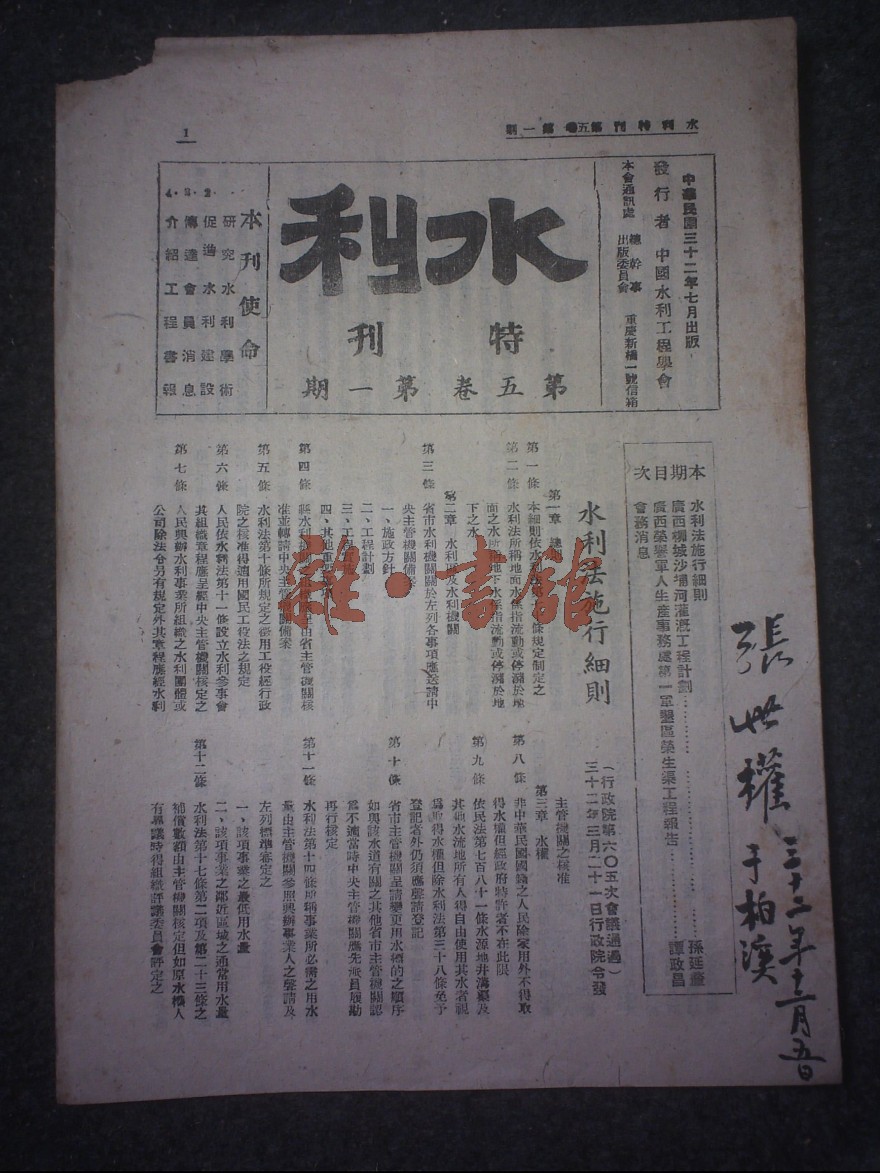 水利特刊第五卷第一期
1
中華民國三十二年七月出版
發行者 中國水利工程學會
本會通訊處
總幹事
出版委員會
重慶新橋一號信箱
水利
特刊
第五卷第一期
本刊使命
研究水利學術
2.促進水利建設
3.傳達會員消息
4.介紹工程書報
本期目次
水利法施行細則
廣西柳城沙埔河灌溉工程計劃 孫延
廣西榮譽軍人生產事務處第一軍墾區榮生渠工程報告 譚政昌
會務消息
水利法施行細則
(行政院第六〇五次會議通過)
三十二年三月二十一日行政院令發
第一章
第一條 本細則依水利法第 條規定制定之
第二條 水利法所稱地面水係指流動或停瀦於地
面之水 地下水係指流動或停瀦於地
下之水
第二章 水利區及水利機關
第三條 省市水利機關關於左列各事項應送請中
央主管機關備案
一、施政方針
二、工程計劃
三、工程
四、其他重要
第四條 由省主管機關核
准並轉請中央主管機關備案
第五條 水利法第十條所規定之徵用工役經行政
院之核准得適用國民工役法之規定
第六條 人民依水利法第十一條設立水利參事會
其組織章程應呈經中央主管機關核定之
第七條 人民興辦水利事業所組織之水利團體或
公司除法令另有規定外其章程應經水利
主管機關之核准
第三章 水權
第八條 非中華民國國籍之人民除家用外不得取
得水權但經政府特許者不在此限
第九條 依民法第七百八十一條水源地井溝渠及
其他水流地所有人得自由使用其水者視
為取得水權但除水利法第三十八條免予
登記者外仍須應聲請登記
第十條 省市主管機關呈請變更用水標的之順序
如與該水道有關之其他省市主管機關認
為不適當時中央主管機關應先派員履勘
再行核定
第十一條 水利法第十四條所稱事業所必需之用水
量由主管機關參照興辦事業人之聲請及
左列標準審定之
一、該項事業之最低用水量
二、該項事業之鄰近區域之通常用水量
第十二條 水利法第十七條第二項及第二十三條之
補償數額由主管機關核定但如原水權人
有異議時得組織評議委員會評定之
張世權
三十二年十二月五日
于柏溪
雜·書館